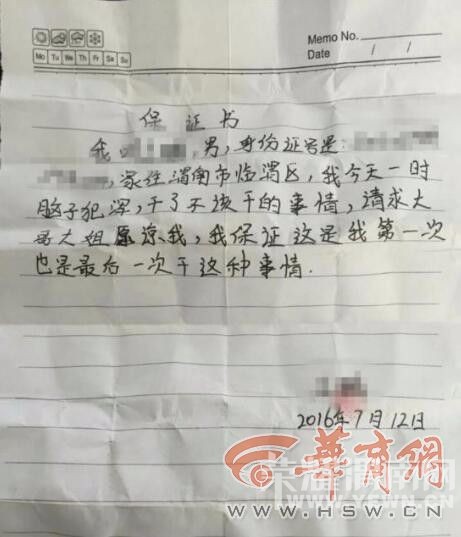 Memo No.
Mo Tu We Th Fr Sa Su
Date / /
保证书
我 男,身份证号是:
,家住渭南市临渭区,我今天一时
脑子犯浑,干了不该干的事情,请求大
哥大姐原谅我,我保证这是我第一次
也是最后一次干这种事情.
2016年7月12日
华商网
荣耀渭南网
WWW.HSW.CN